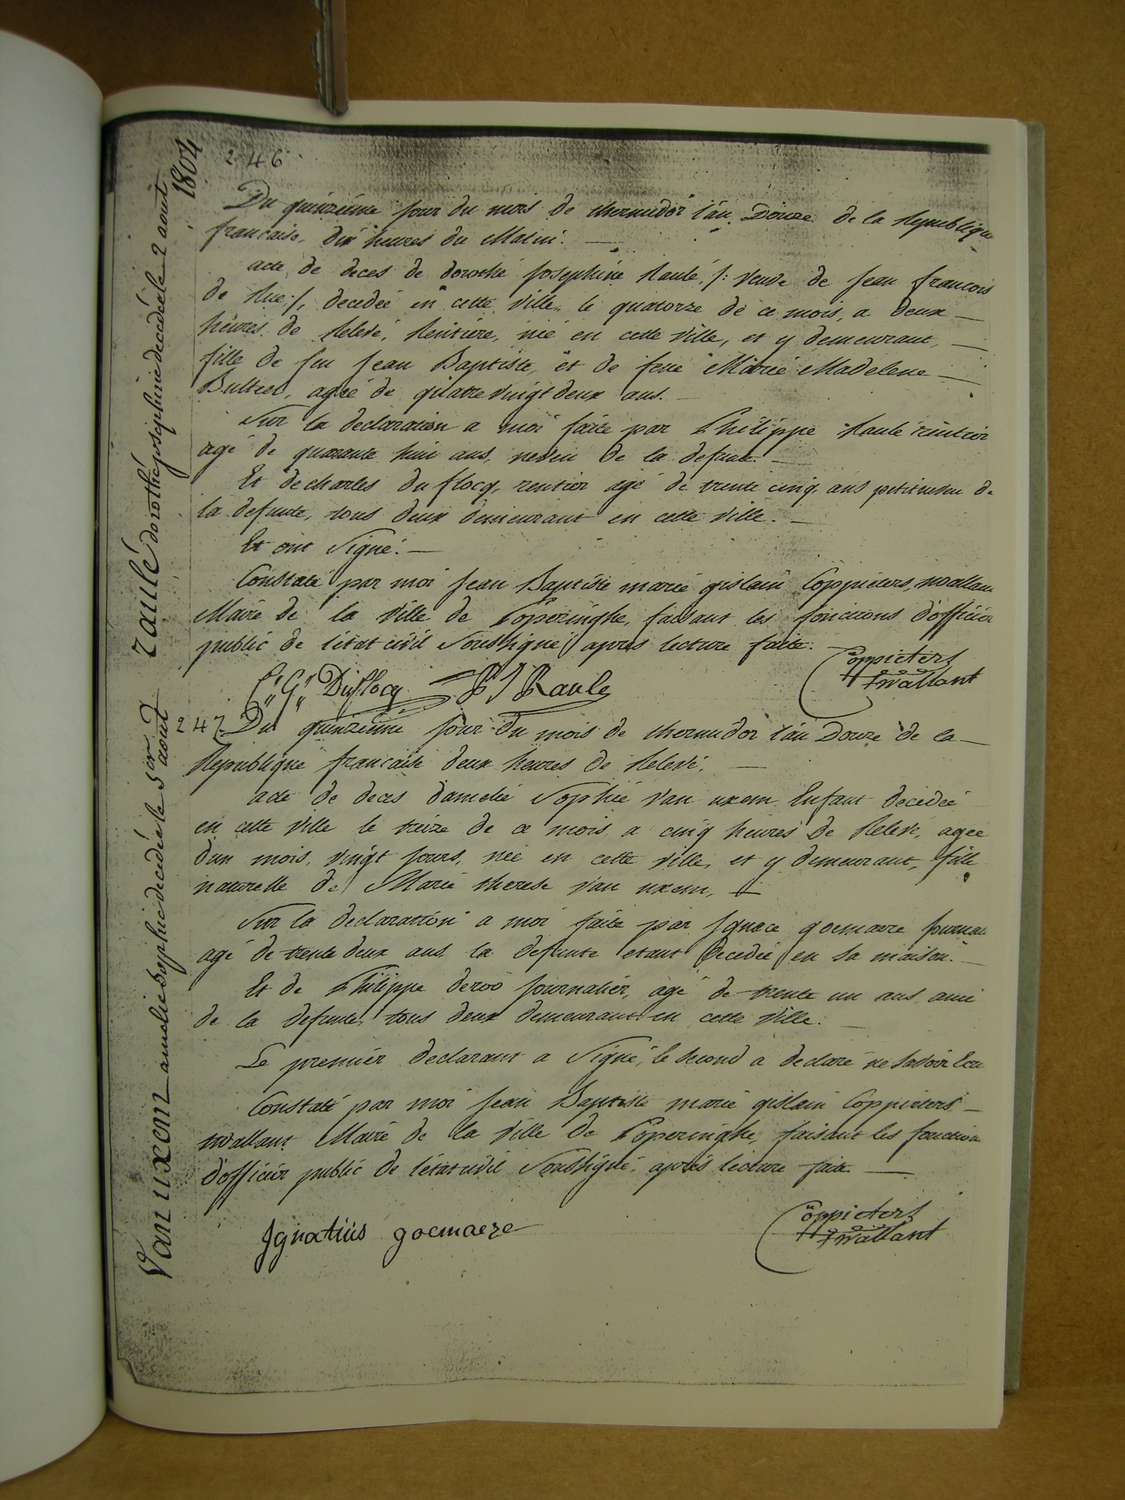 1804
246
Du quinzieme jour du mois de thermidor l'an Douze de la Republique
francaise, dix heures du Matin. —
acte de deces de dorothé josephine Raulé /: veuve de jean francois
de Rue :/, decedée en cette ville, le quatorze de ce mois, a deux —
heures de Relevé, Rentiere, née en cette ville, et y demeurant, —
fille de feu jean Baptiste, et de feue Marie Madelene —
agée de quatrevingt deux ans. —
Sur la declaration a moi faite par Philippe Raulé rentier
agé de quarante huit ans, neveu de la defunte. —
Et de charles duflocq, rentier agé de trente cinq ans petit neveu de
la defunte, tous deux demeurant en cette ville. —
Et ont Signé. —
Constaté par moi jean Baptiste marie gislain Coppieters, wallant
Maire de la ville de Poperinghe, faisant les fonctions d'officier
public de l'état civil soussigné, après lecture faite. —
C,, G,, Duflocq P J Raulé
Coppieters
twallant
247. Du quinzieme jour du mois de thermidor l'an Douze de la —
Republique francaise deux heures de Relevé. —
acte de deces d'amelie Sophie Van uxem Enfant decedée
en cette ville le treize de ce mois a cinq heures de Relevé, agee
d'un mois, vingt jours, née en cette ville, et y demeurant, fille
naturelle de Marie therese Van uxem,
Sur la declaration a moi faite par Ignace goemaere
agé de trente deux ans, la defunte etant decedée en sa maison. —
Et de Philippe deroo journalier, agé de trente un ans, ami
de la defunte, tous deux demeurant en cette ville. —
Le premier declarant a Signé, le second a declaré ne savoir
Constaté par moi jean Baptiste marie gislain Coppieters —
twallant Maire de la ville de Poperinghe, faisant les fonction
d'officier public de l'état civil soussigné, après lecture faite. —
Ignatius goemaere
Coppieters
twallant
raulé dorothé josephine decedée le 2 aout
Van uxem amelie sophie decedé le 1er aout